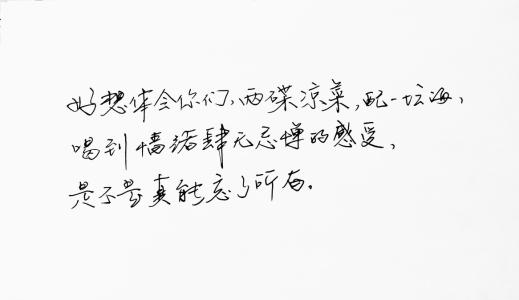 好想体会你们,两碟凉菜,配一坛海,
喝到情绪肆无忌惮的感受,
是不是真能忘了所有。